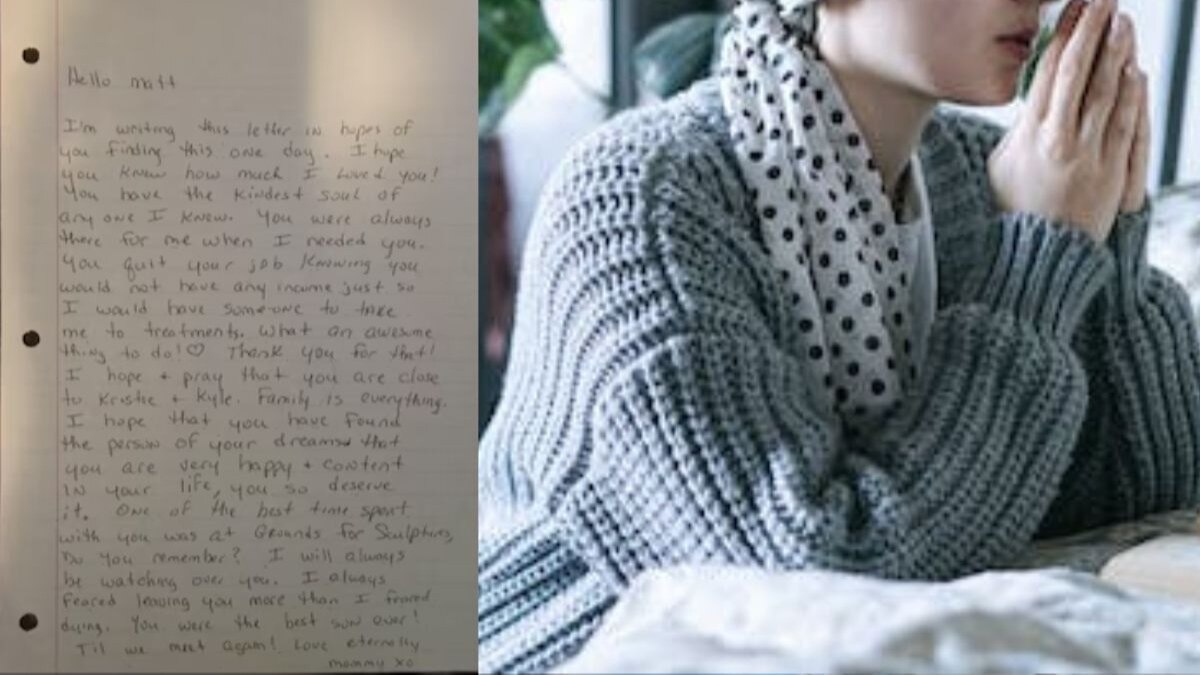 Hello Matt
I'm writing this letter in hopes of
you finding this one day. I hope
you know how much I loved you!
You have the kindest soul of
anyone I knew. You were always
there for me when I needed you.
You quit your job knowing you
would not have any income just so
I would have someone to take
me to treatments. What an awesome
thing to do!♡ Thank you for that!
I hope + pray that you are close
to Kristie + Kyle. Family is everything.
I hope that you have found
the person of your dreams that
you are very happy + content
in your life, you so deserve
it. One of the best time spent
with you was at Grounds for Sculptures,
Do you remember? I will always
be watching over you. I always
feared leaving you more than I feared
dying. You were the best son ever!
Til we meet again! Love eternally
mommy xo